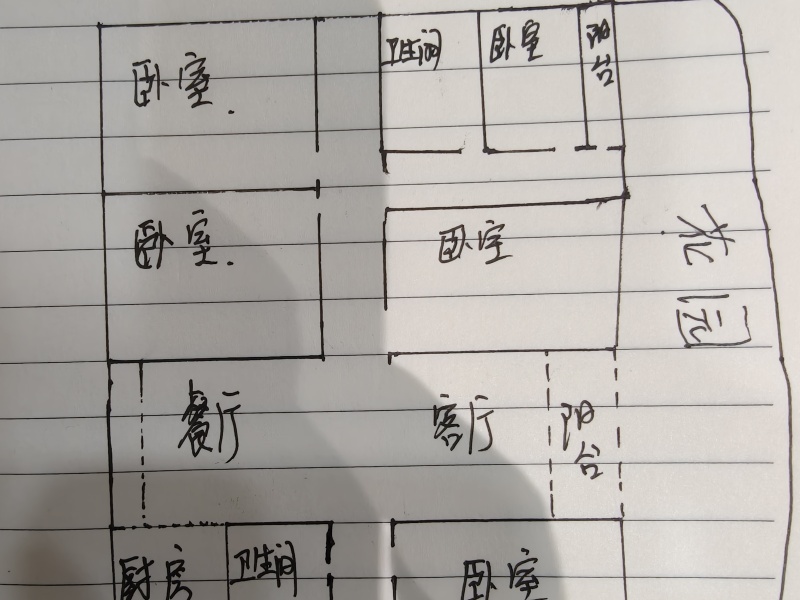 卧室
卫生间
卧室
阳台
卧室
卧室
花园
餐厅
客厅
阳台
厨房
卫生间
卧室